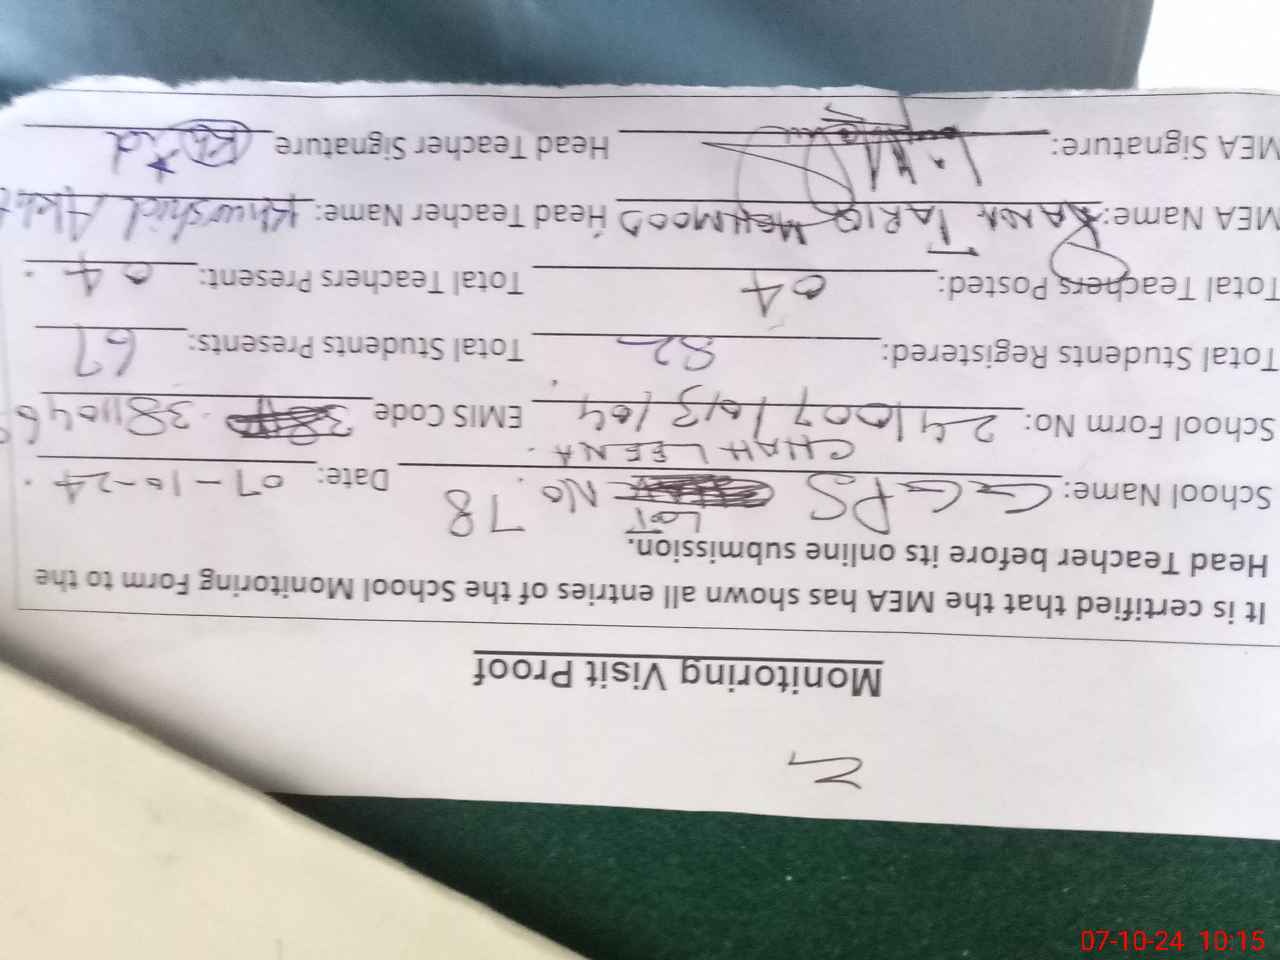 2
Monitoring Visit Proof
It is certified that the MEA has shown all entries of the School Monitoring Form to the
Head Teacher before its online submission.
School Name: GGPS LOT No. 78 Date: 07-10-24.
CHAH LEENA.
School Form No: 241007/013/104 EMIS Code 3811046
Total Students Registered: 82 Total Students Presents: 67
Total Teachers Posted: 04 Total Teachers Present: 04.
MEA Name: RANA TARIQ MEHMOOD Head Teacher Name: Khurshid Akht
MEA Signature: Head Teacher Signature
07-10-24 10:15